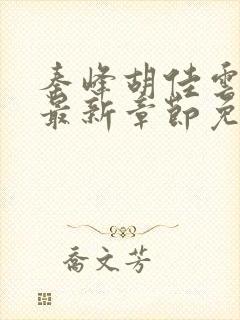 秦峰胡佳雲
最新章節免
喬文芳